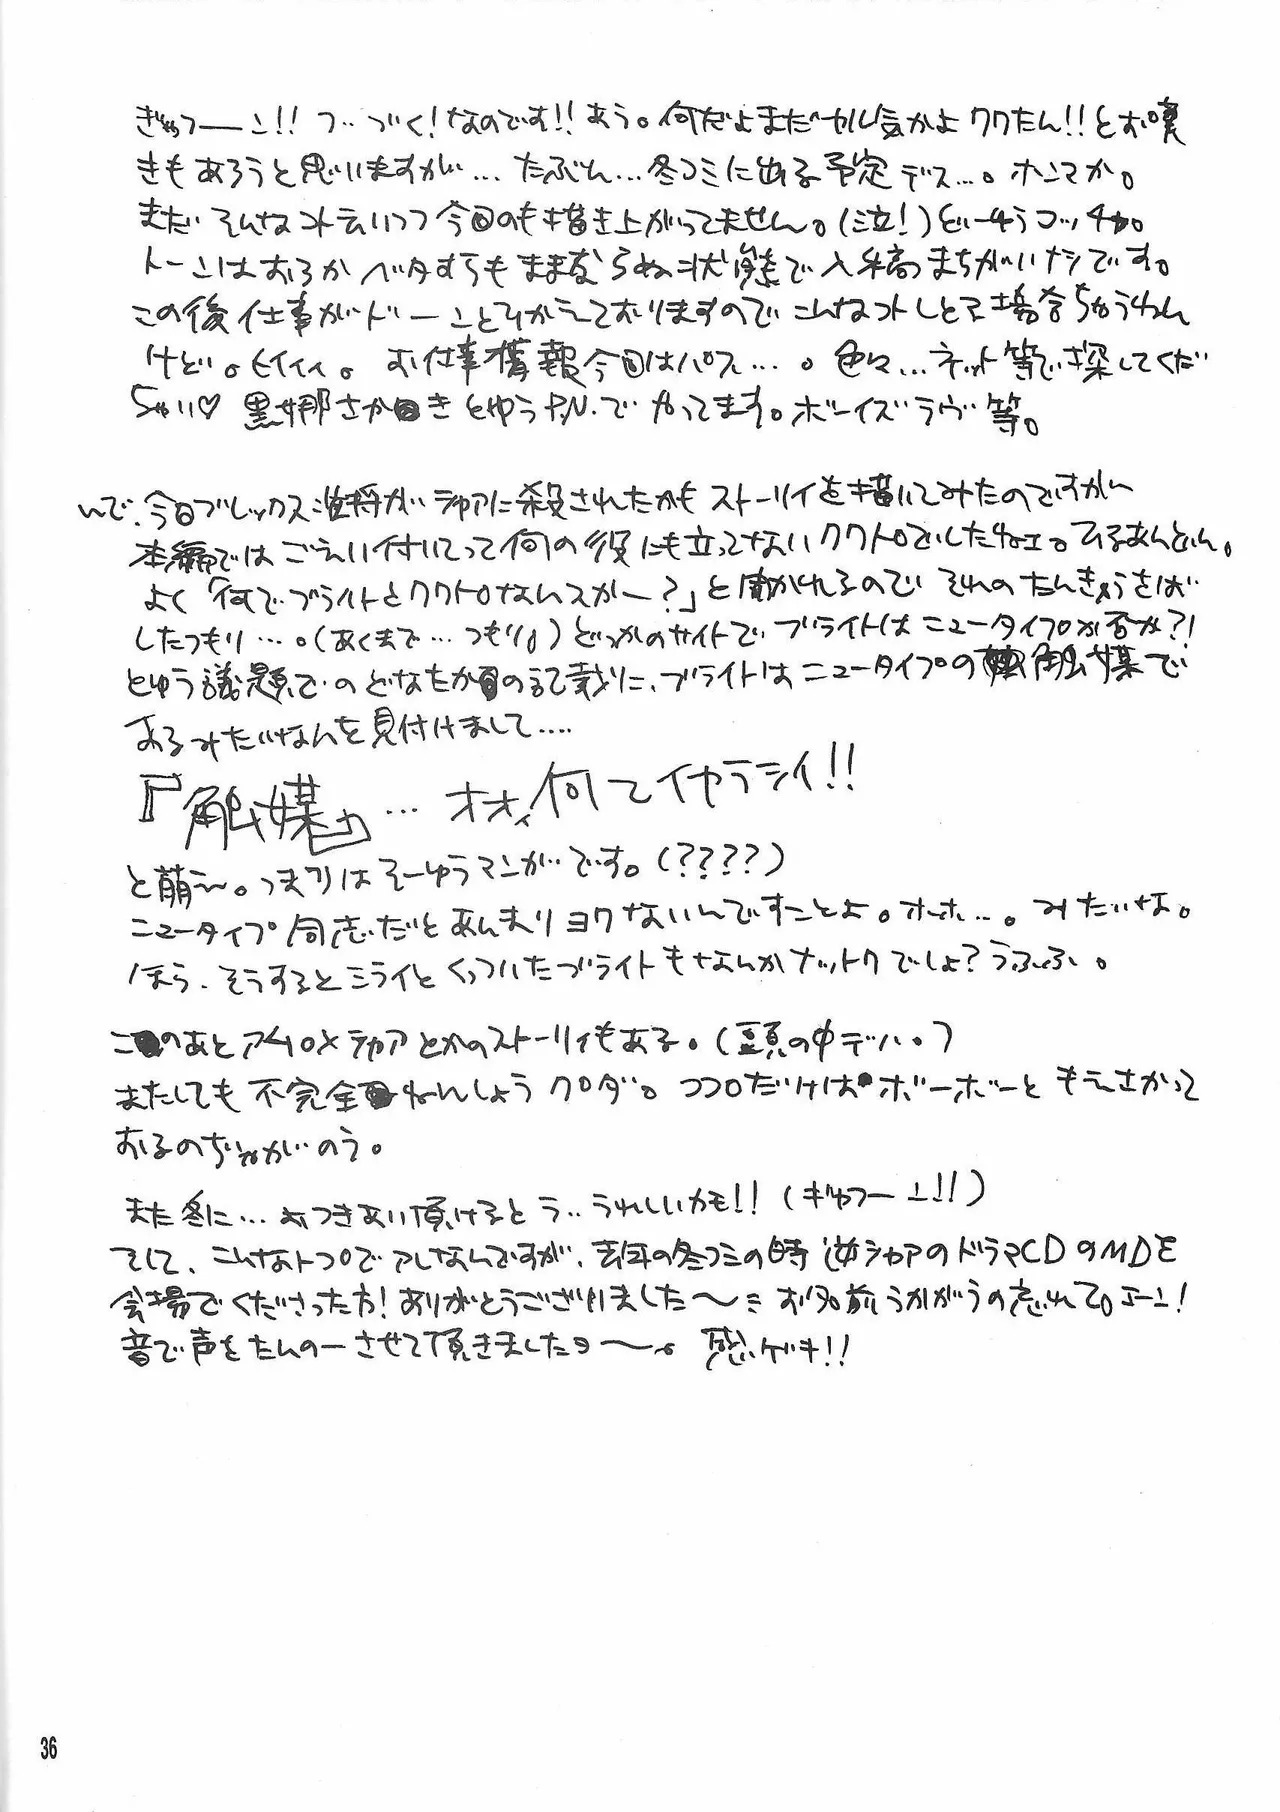 ぎゅつーーン!! つ・・づく!なのです!!あう。何だよまだヤル気かよクワたん!!とお嘆
きもあろうと思いますが…たぶん…冬コミに出る予定デス…。ホンマか。
まだそんなコト云いつつ今回のも描き上がってません。(泣!)どーゆうコッチャ。
トーンはおろかベタすらもままならぬ状態で入稿まちがいナシです。
この後仕事がドーンとひかえておりますのでこんなコトしとる場合ちゃうねん
けど。ヒイィィ。 お仕事情報今回はパス…。色々…ネット等で探してくだ
ちゃい♡ 黒娜さかきとゆうP.N.でやってます。ボーイズラヴ等。
んで、今回ブレックス准将がシャアに殺されたかもストーリイを描いてみたのですが
本編ではごえい付いてって何の役にも立ってないクワトロでしたねェ。てるあんどん。
よく「何でブライトとクワトロなんスかー?」と聞かれるのでそれのたんきゅうをば
したつもり…。(あくまで…つもり。)どっかのサイトでブライトはニュータイプか否か?!
とゆう議題でのどなたかの記載に、ブライトはニュータイプの触媒で
あるみたいなんを見付けまして….
『触媒』… オオ、何てイヤラシイ!!
と萌え〜。つまりはそーゆうマンガです。(????)
ニュータイプ同志だとあんまりヨクないんですことよ。ホホ…。みたいな。
ほら、そうするとミライとくっついたブライトもなんかナットクでしょ?うふふ。
このあとアムロ×シャアとかのストーリイもある。(頭の中デハ。)
またしても不完全ねんしょうクワダ。ココロだけはボーボーともえさかって
おるのぢゃがのう。
また冬に…おつきあい頂けるとう・・うれしいカモ!!(ギャフーン!!)
そして、こんなトコでアレなんですが、去年の冬コミの時逆シャアのドラマCDのMDを
会場でくださった方!ありがとうございました〜 お名前うかがうの忘れて。エーン!
音で声をたんのーさせて頂きましたヨ〜。 感ゲキ!!
36